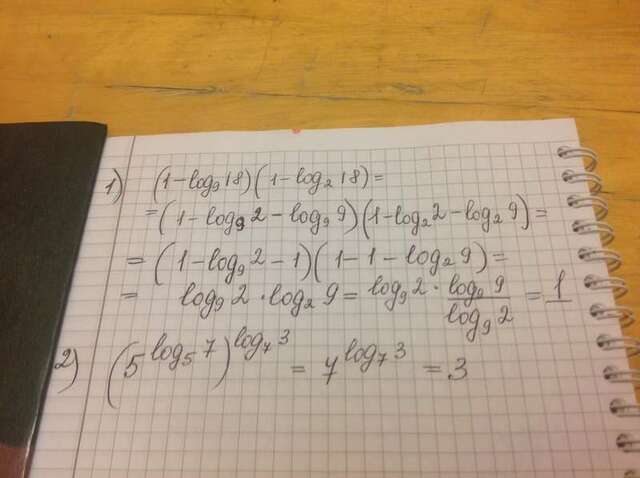 1) (1-log₉18)(1-log₂18)=
=(1-log₉2-log₉9)(1-log₂2-log₂9)=
=(1-log₉2-1)(1-1-log₂9)=
= log₉2·log₂9=log₉2·log₉9/log₉2=1
2) (5^log₅7)^log₇3 = 7^log₇3 = 3